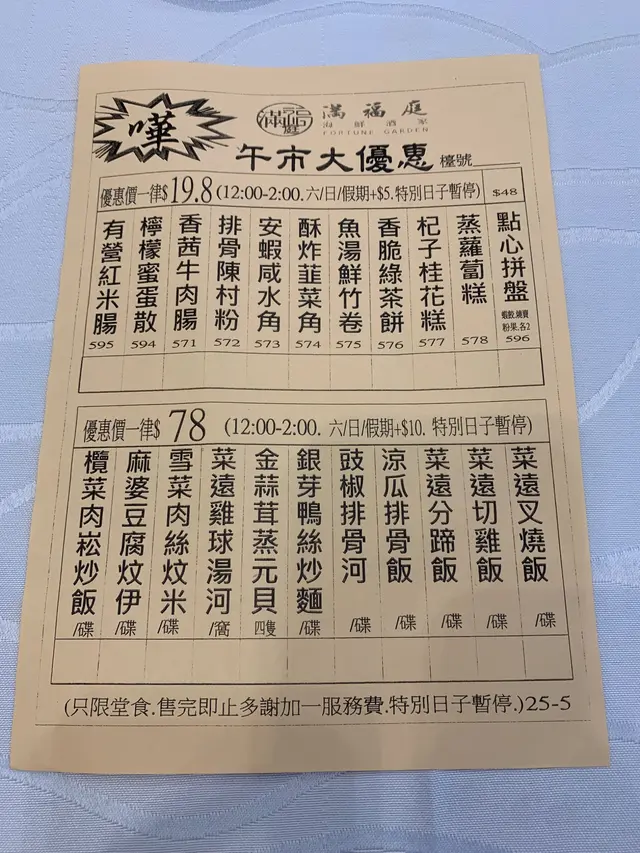 嘩
滿福庭
滿福庭
海鮮酒家
FORTUNE GARDEN
午市大優惠 檯號
優惠價一律$19.8(12:00-2:00.六/日/假期+$5.特別日子暫停)
$48
有營紅米腸
595
檸檬蜜蛋散
594
香茜牛肉腸
571
排骨陳村粉
572
安蝦咸水角
573
酥炸韮菜角
574
魚湯鮮竹卷
575
香脆綠茶餅
576
杞子桂花糕
577
蒸蘿蔔糕
578
點心拼盤
蝦餃.燒賣
粉果.各2
596
優惠價一律$ 78 (12:00-2:00. 六/日/假期+$10. 特別日子暫停)
欖菜肉崧炒飯
/碟
麻婆豆腐炆伊
/碟
雪菜肉絲炆米
/碟
菜遠雞球湯河
/窩
金蒜茸蒸元貝
四隻
銀芽鴨絲炒麵
/碟
豉椒排骨河
/碟
涼瓜排骨飯
/碟
菜遠分蹄飯
/碟
菜遠切雞飯
/碟
菜遠叉燒飯
/碟
(只限堂食.售完即止多謝加一服務費.特別日子暫停.)25-5